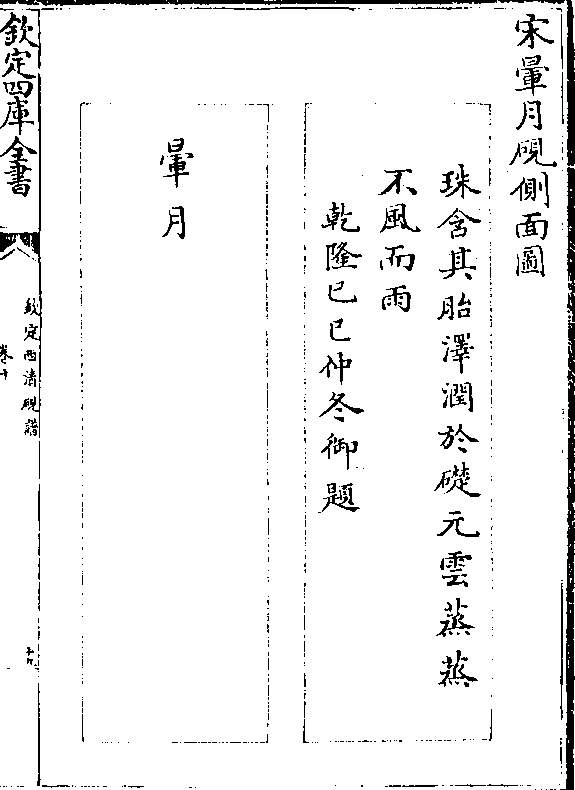 宋暈月硯側面圖
珠含其胎澤潤於礎元雲蒸蒸
不風而雨
乾隆己巳仲冬御題
暈月
欽定四庫全書
欽定西清硯譜
卷十
十九